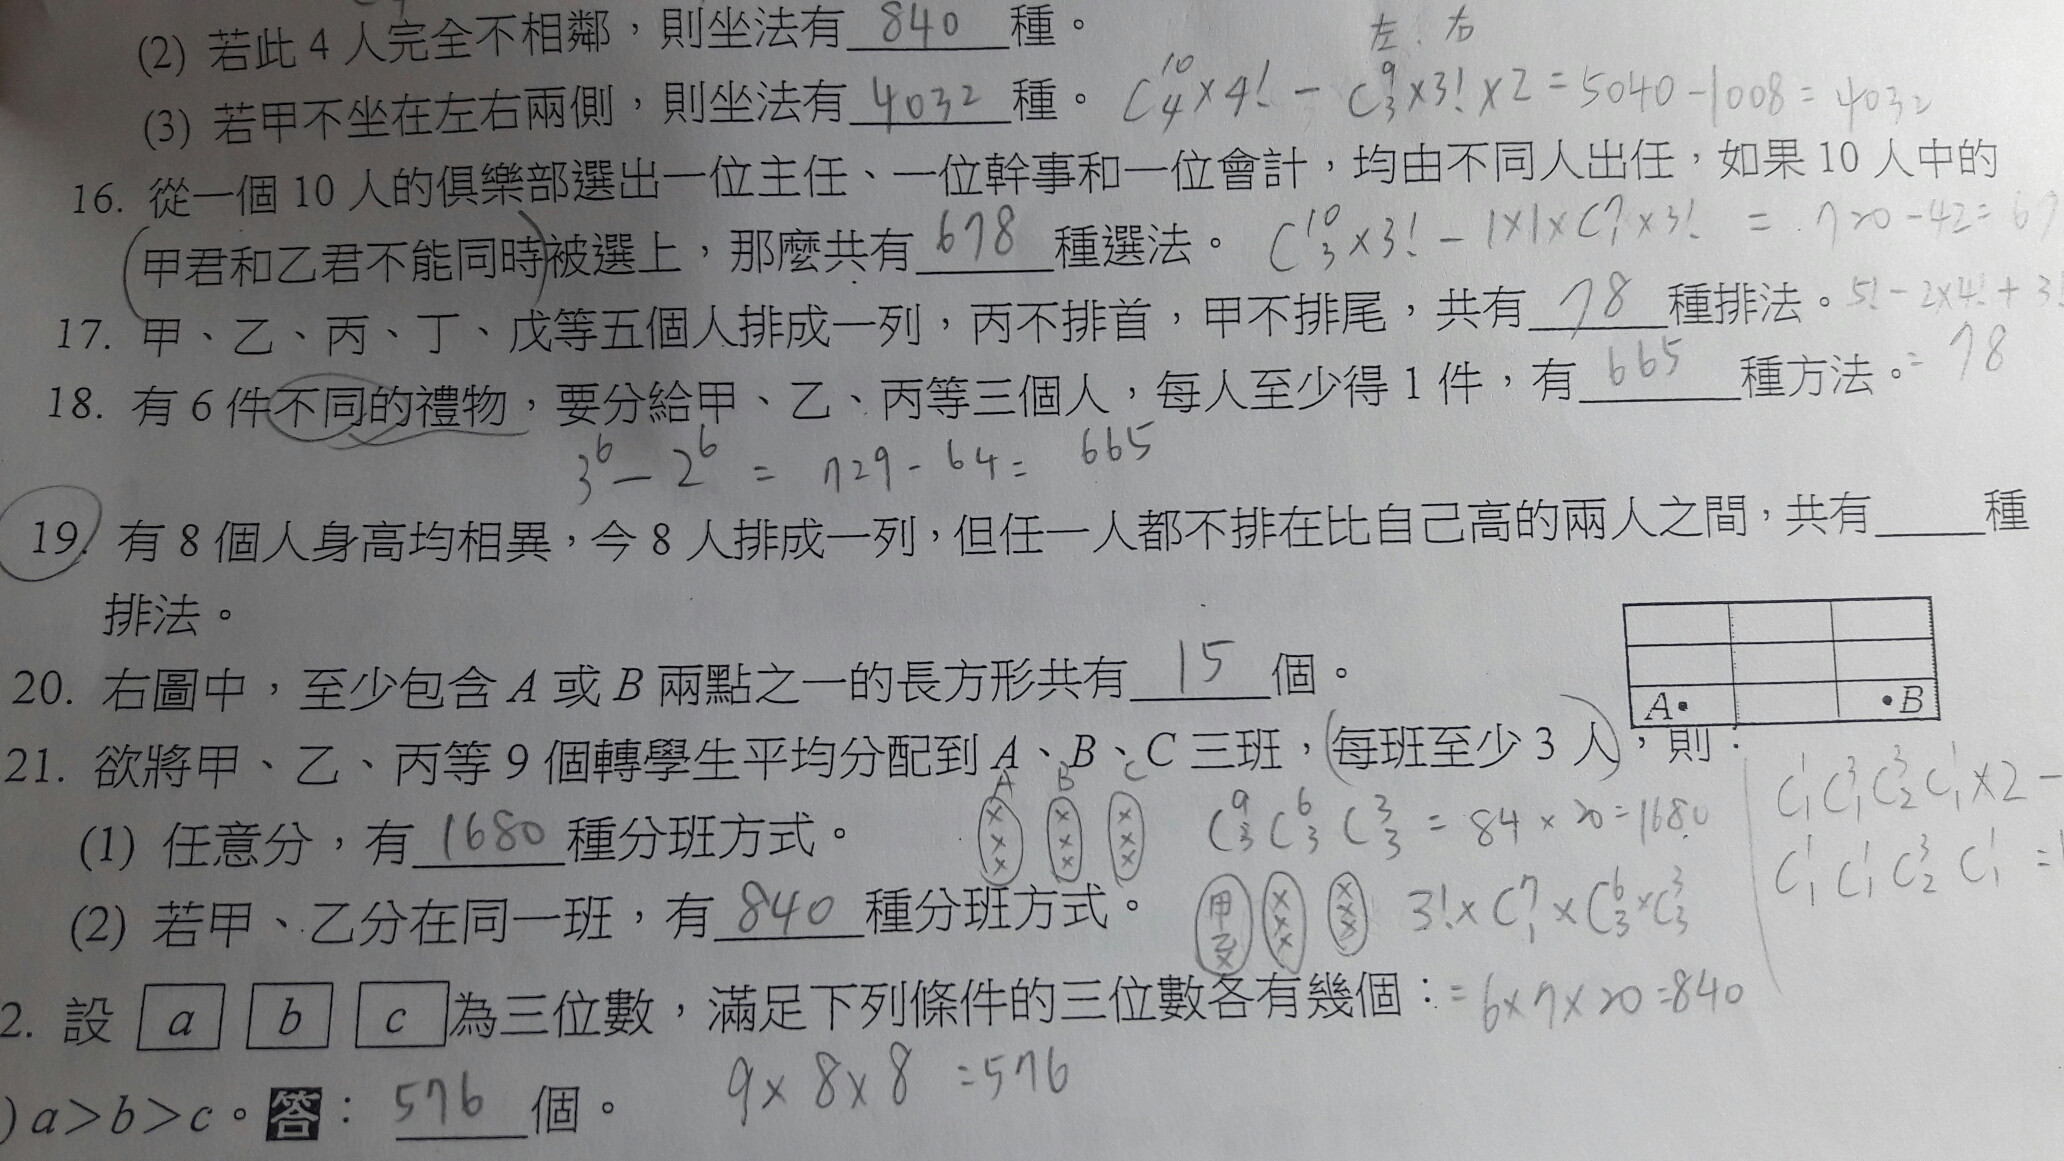 (2) 若此 4 人完全不相鄰，則坐法有 840 種。
左 右
(3) 若甲不坐在左右兩側，則坐法有 4032 種。 C¹⁰₄×4! - C⁹₃×3!×2 = 5040-1008 = 4032
16. 從一個 10 人的俱樂部選出一位主任、一位幹事和一位會計，均由不同人出任，如果 10 人中的
甲君和乙君不能同時被選上，那麼共有 678 種選法。 C¹⁰₃×3! - 1×1×C⁷₁×3! = 720-42=67
17. 甲、乙、丙、丁、戊等五個人排成一列，丙不排首，甲不排尾，共有 78 種排法。 5!-2×4!+3!
= 78
18. 有 6 件不同的禮物，要分給甲、乙、丙等三個人，每人至少得 1 件，有 665 種方法。
3⁶ - 2⁶ = 729 - 64 = 665
19. 有 8 個人身高均相異，今 8 人排成一列，但任一人都不排在比自己高的兩人之間，共有 種
排法。
20. 右圖中，至少包含 A 或 B 兩點之一的長方形共有 15 個。
A• •B
21. 欲將甲、乙、丙等 9 個轉學生平均分配到 A、B、C 三班，(每班至少 3 人)，則：
A B C
(1) 任意分，有 1680 種分班方式。 ××× ××× ××× C⁹₃ C⁶₃ C³₃ = 84×20=1680
C¹₁C³₁C³₂C¹₁×2 -
C¹₁ C¹₁ C³₂ C¹₁ =
(2) 若甲、乙分在同一班，有 840 種分班方式。 甲乙× ××× ××× 3!×C⁷₁×C⁶₃×C³₃
= 6×7×20=840
2. 設 a b c 為三位數，滿足下列條件的三位數各有幾個：
) a＞b＞c。答： 576 個。 9×8×8 =576